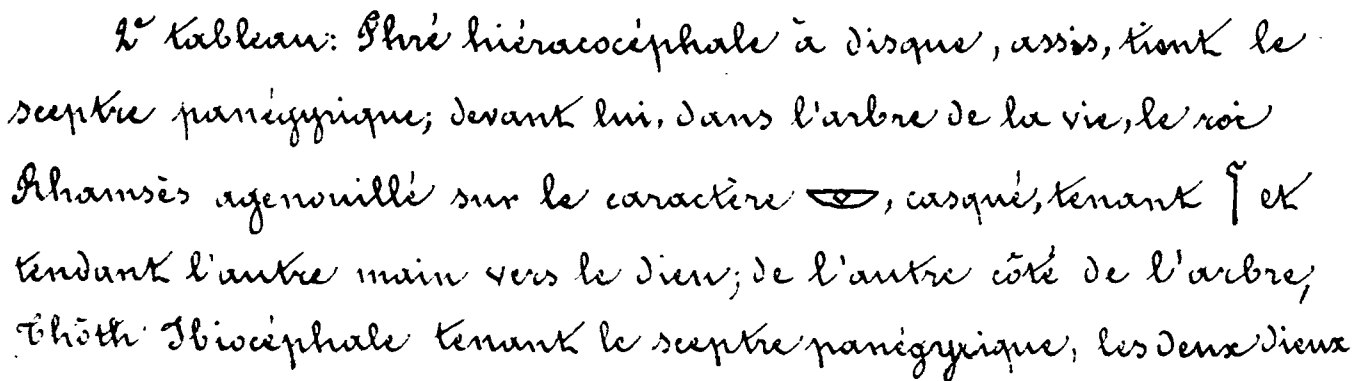 2e tableau: Phré hiéracocéphale à disque, assis, tient le
sceptre panégyrique; devant lui, dans l'arbre de la vie, le roi
Rhamsès agenouillé sur le caractère 𓎱, casqué, tenant 𓋾 et
tendant l'autre main vers le dieu; de l'autre côté de l'arbre,
Thôth Ibiocéphale tenant le sceptre panégyrique, les deux dieux